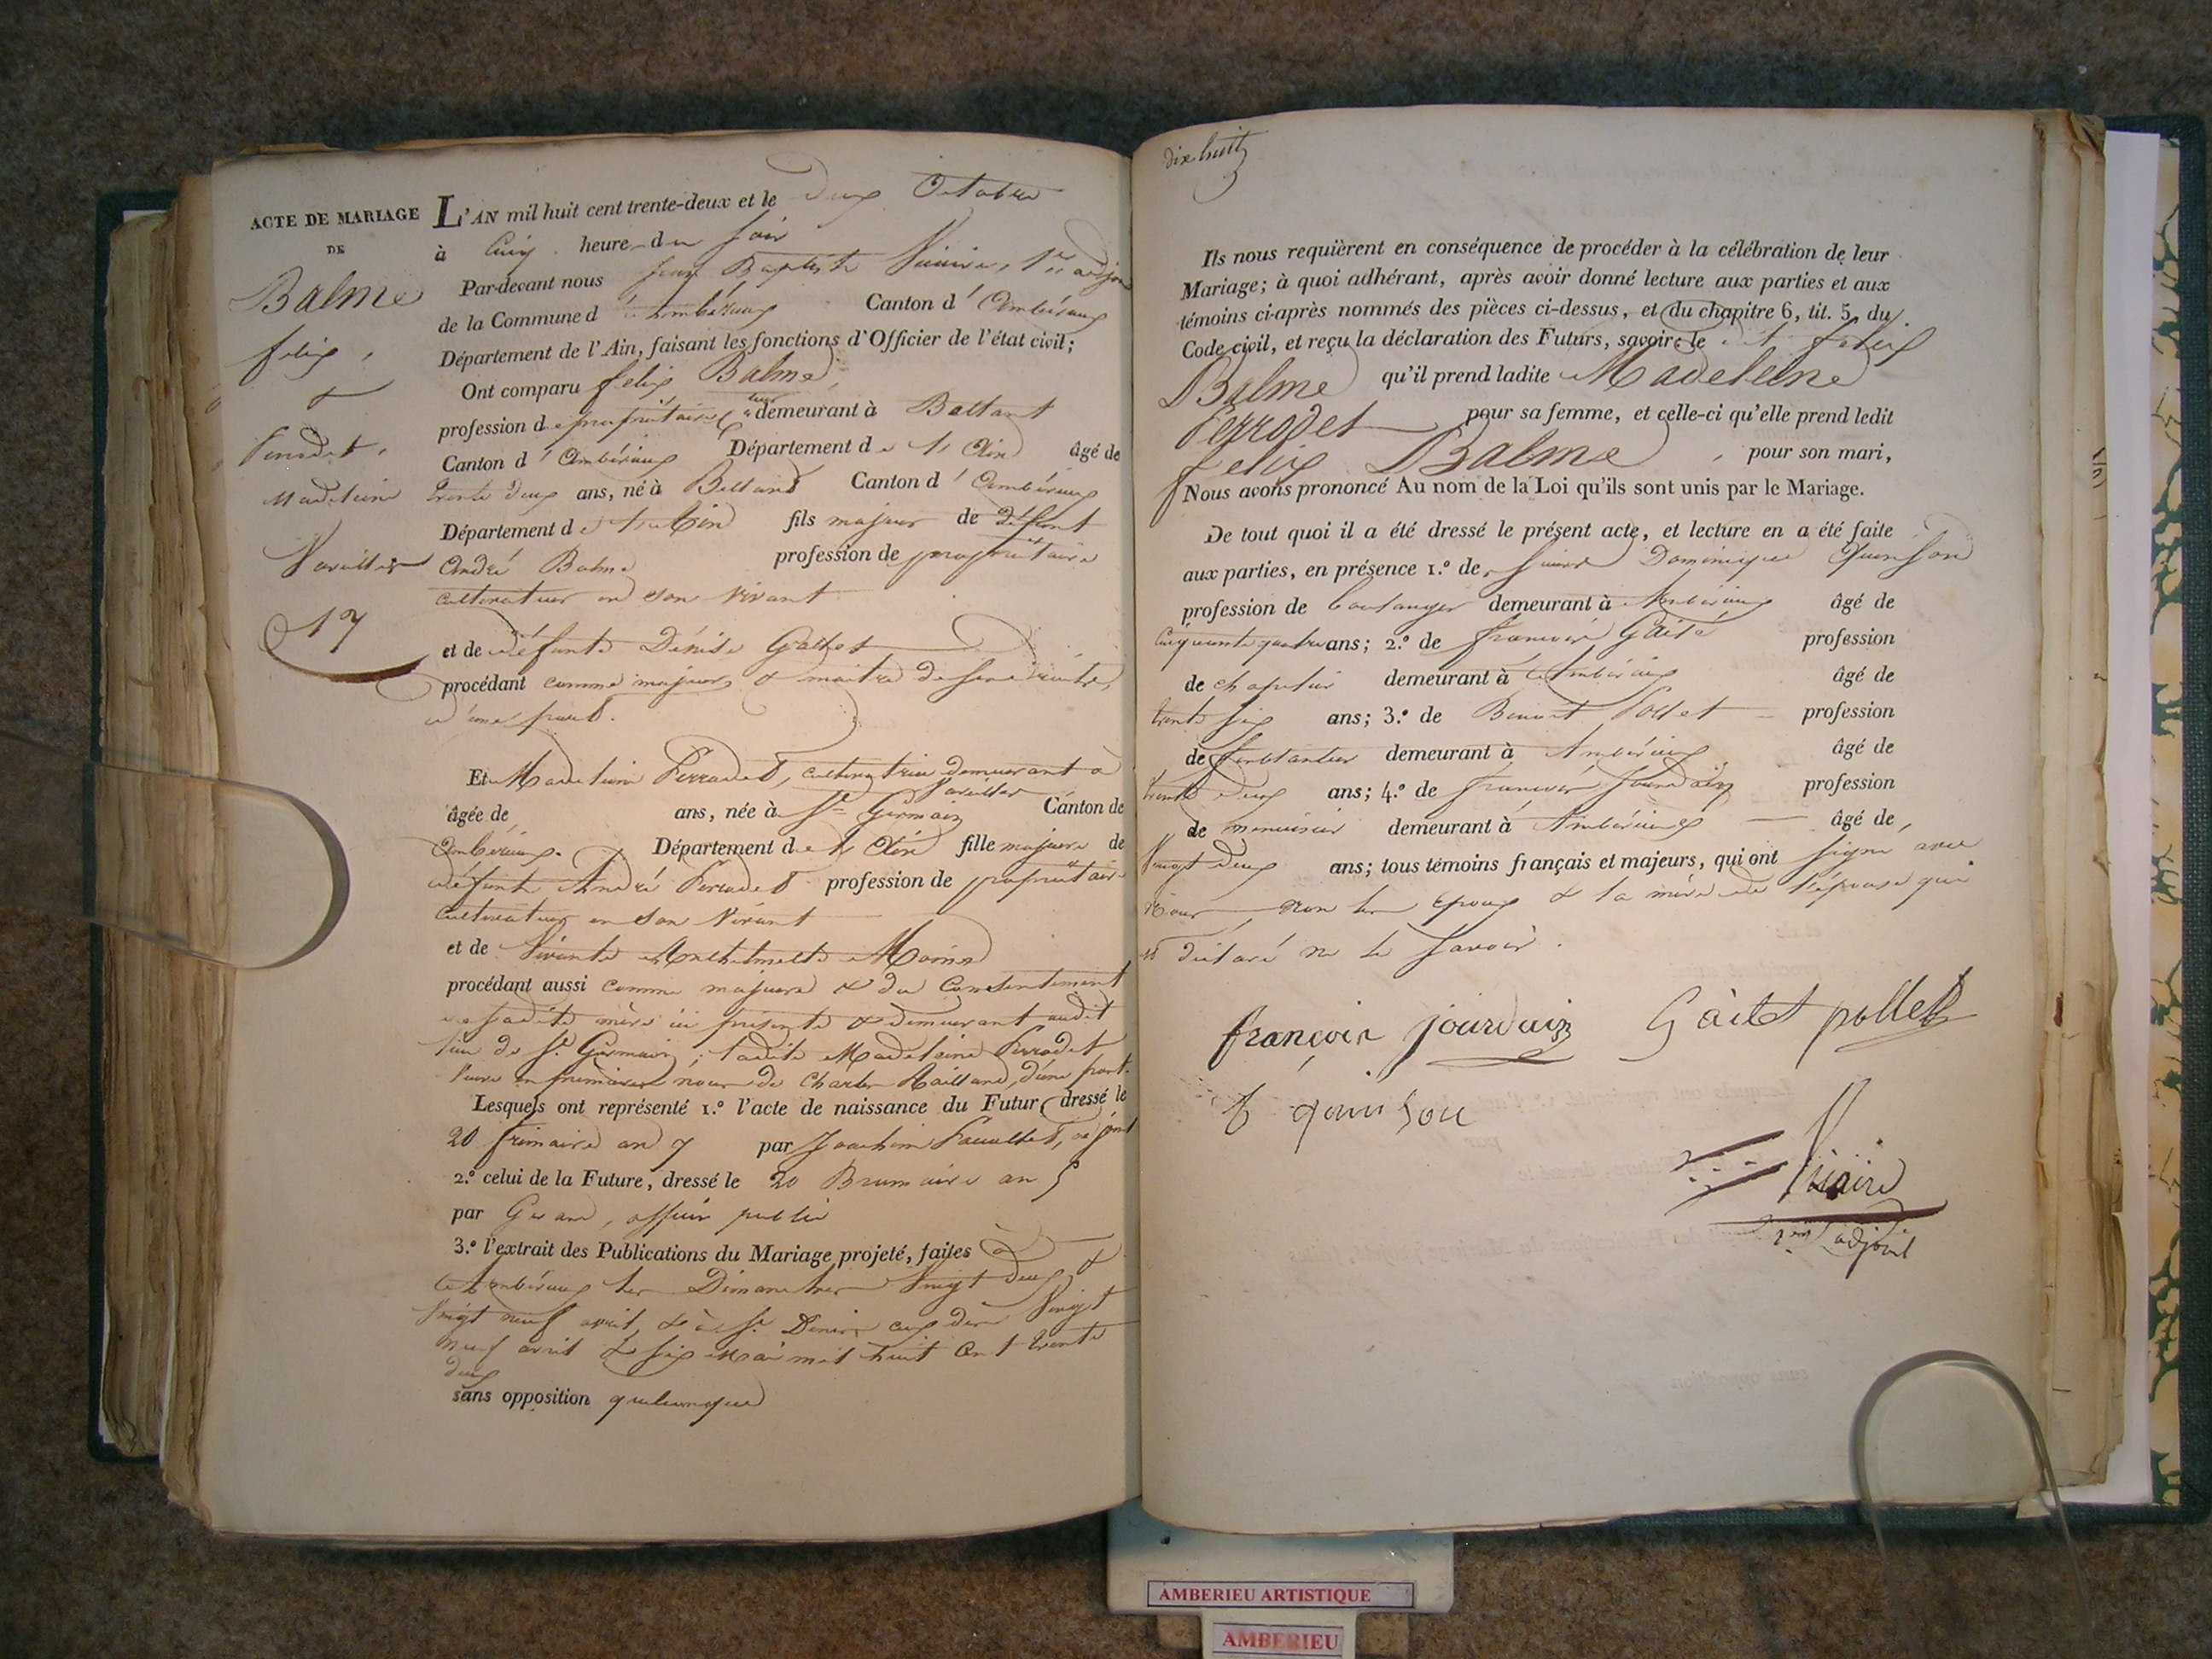 ACTE DE MARIAGE
DE
Balme
felix,
&
Perrodet,
Madeleine
Vareilles
17
L'AN mil huit cent trente-deux et le deux Octobre
à Cinq heure du soir
Par-devant nous Jean Baptiste 1er adjoint
de la Commune d'Ambérieux Canton d'Ambérieux
Département de l'Ain, faisant les fonctions d'Officier de l'état civil;
Ont comparu felix Balme,
profession de propriétaire demeurant à Bettant
Canton d'Ambérieux Département de l'Ain âgé de
trente deux ans, né à Bettant Canton d'Ambérieux
Département de l'Ain fils majeur de défunt
André Balme profession de propriétaire
cultivateur en son vivant
et de défunte Dénise
procédant comme majeur & maitre de ses droits,
d'une part.
Et Madeleine Perrodet, cultivatrice demeurant à
Vareilles
âgée de ans, née à St Germain Canton de
Ambérieux. Département de l'Ain fille majeure de
défunt André Perrodet profession de propriétaire
cultivateur en son vivant
et de Vivante
procédant aussi comme majeure & du consentement
de sadite mère ici présente & demeurant audit
lieu de St Germain; ladite Madeleine Perrodet
veuve en premières noces de Charles d'une part.
Lesquels ont représenté 1.º l'acte de naissance du Futur, dressé le
20 frimaire an 7 par Joachim adjoint
2.º celui de la Future, dressé le 20 Brumaire an 5
par officier public
3.º l'extrait des Publications du Mariage projeté, faites à
Ambérieux les Dimanches Vingt deux &
Vingt neuf avril, & à St Denis Vingt
neuf avril & six Mai mil huit cent trente
deux
sans opposition quelconque
dix huit
Ils nous requièrent en conséquence de procéder à la célébration de leur
Mariage; à quoi adhérant, après avoir donné lecture aux parties et aux
témoins ci-après nommés des pièces ci-dessus, et du chapitre 6, tit. 5, du
Code civil, et reçu la déclaration des Futurs, savoir: le dit felix
Balme qu'il prend ladite Madeleine
Perrodet pour sa femme, et celle-ci qu'elle prend ledit
felix Balme, pour son mari,
Nous avons prononcé Au nom de la Loi qu'ils sont unis par le Mariage.
De tout quoi il a été dressé le présent acte, et lecture en a été faite
aux parties, en présence 1.º de Dominique Quinson
profession de boulanger demeurant à Ambérieux âgé de
Cinquante quatre ans; 2.º de françois profession
de chapelier demeurant à Ambérieux âgé de
trente six ans; 3.º de Benoit Pollet profession
de ferblantier demeurant à Ambérieux âgé de
trente deux ans; 4.º de françois Jourdain profession
de menuisier demeurant à Ambérieux âgé de,
Vingt deux ans; tous témoins français et majeurs, qui ont signé avec
nous non les époux & la mère de l'épouse qui
ont déclaré ne le savoir.
françois jourdain pollet
quinson
1er adjoint
AMBERIEU ARTISTIQUE
AMBERIEU